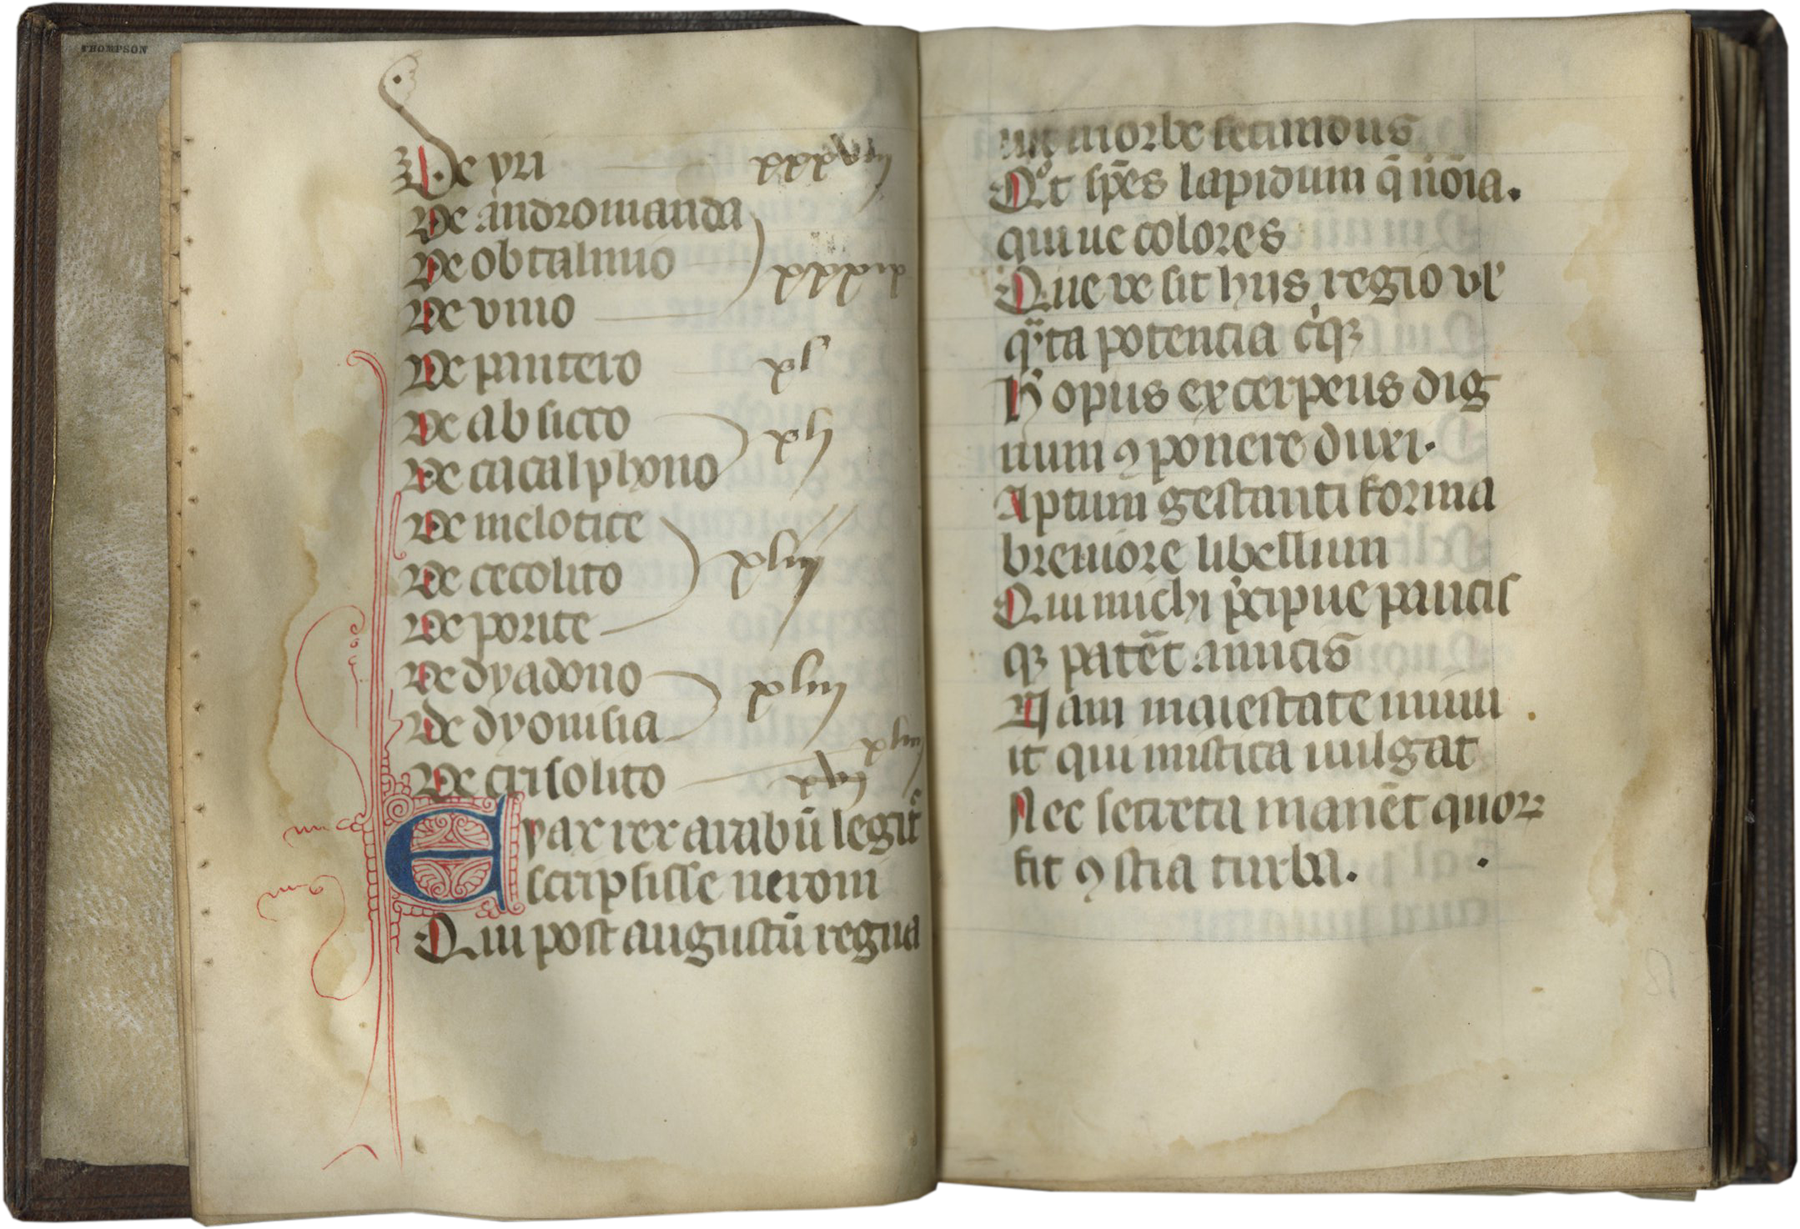 THOMPSON
De yri xxxviij
De andromanda
De obtalmio xxxix
De vnio
De pantero xl
De absicto xlj
De cacalphono
De melotite
De cecolito xlij
De porite
De dyadono xliij
De dyonisia
xliiij
De crisolito
Evax rex arabū legit᷑
scripsisse neroni
Qui post augustū regna
uit i orbe secundus
Qͦt sp̄es lapidum q̄ nōīa.
quiue colores
Que ve sit hijs regio vl'
qͣta potencia cͥqꝫ
H̊ opus excerpens dig
num ꝯponere duxi.
Aptum gestanti forma
breuiore libellum
Qui michi pͥcipue paucis
qꝫ patēt amicis
Nam maiestate minu
it qui mistica uulgat
Nec secreta manēt quoꝝ
fit ꝯscia turba.